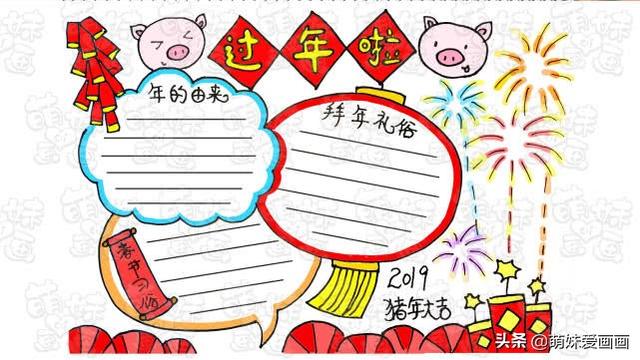 过年啦
年的由来
拜年礼俗
春节习俗
2019
猪年大吉
头条@萌妹爱画画
萌妹画画